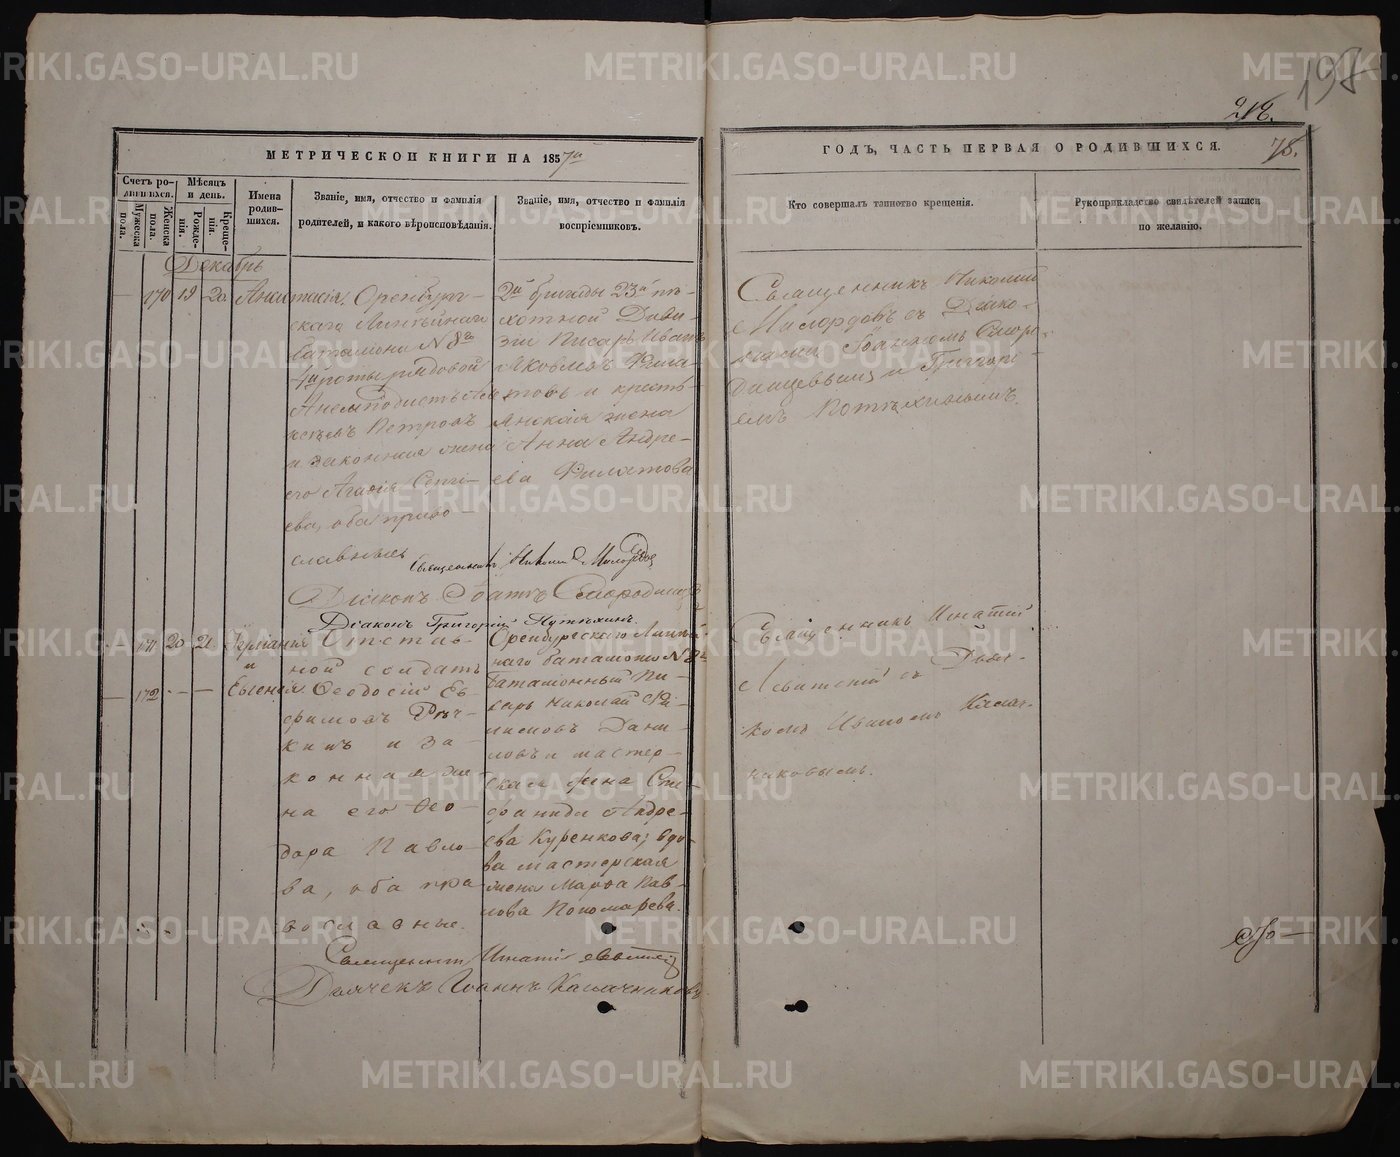 METRIKI.GASO-URAL.RU
198
218.
МЕТРИЧЕСКОЙ КНИГИ НА 1857й
ГОДЪ, ЧАСТЬ ПЕРВАЯ О РОДИВШИХСЯ.
78.
Счетъ родившихся.
Мужеска пола.
Женска пола.
Мѣсяцъ и день.
Рожденія.
Крещенія.
Имена родившихся.
Званіе, имя, отчество и фамилія родителей, и какого вѣроисповѣданія.
Званіе, имя, отчество и фамилія воспріемниковъ.
Кто совершалъ таинство крещенія.
Рукоприкладство свидѣтелей записи по желанію.
Декабрь
170 19 20 Анастасія.
Оренбург-
скаго Линѣйнаго
баталіона № 8го
4й роты рядовой
Петровъ
и законная жена
его Агафія Сергі-
ева, оба право-
славные
2й бригады 23й пѣ-
хотной Диви-
зіи Писарь Иванъ
Яковлевъ Фила-
товъ и кресть-
янская жена
Анна Андре-
ева Филатова
Священникъ Николай
Милордовъ съ Діако-
нами Іоанномъ Сморо-
динцевымъ и Григорі-
емъ Потѣхинымъ
Священникъ Николай Милордовъ
Діаконъ Іоаннъ Смородинцевъ
Діаконъ Григорій Путѣхинъ
171 20 21
и
172 - - Евгенія.
Отстав-
ной солдатъ
Ѳеодосій Ев-
фимовъ
и за-
конная же-
на его Ѳео-
дора Павло-
ва, оба пра-
вославные.
Оренбургскаго Линѣй-
наго баталіона № 8го
баталіонный Пи-
сарь Николай Фи-
Дани-
ловъ и мастер-
ская жена Сте-
фанида Андре-
ева Куренкова; вдо-
ва мастерская
жена Марѳа Пав-
лова Пономарева.
Священникъ Игнатій
Левитскій съ Дьяч-
комъ Иваномъ Калач-
никовымъ.
Священникъ Игнатій Левитскій
Дьячекъ Іоаннъ Калачниковъ